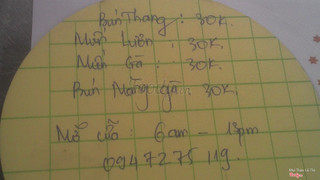 Bún Thang : 30K.
Miến Lươn : 30K.
Miến Gà : 30K.
Bún Măng gà : 30K.
Mở cửa : 6am - 13pm
0947275119.